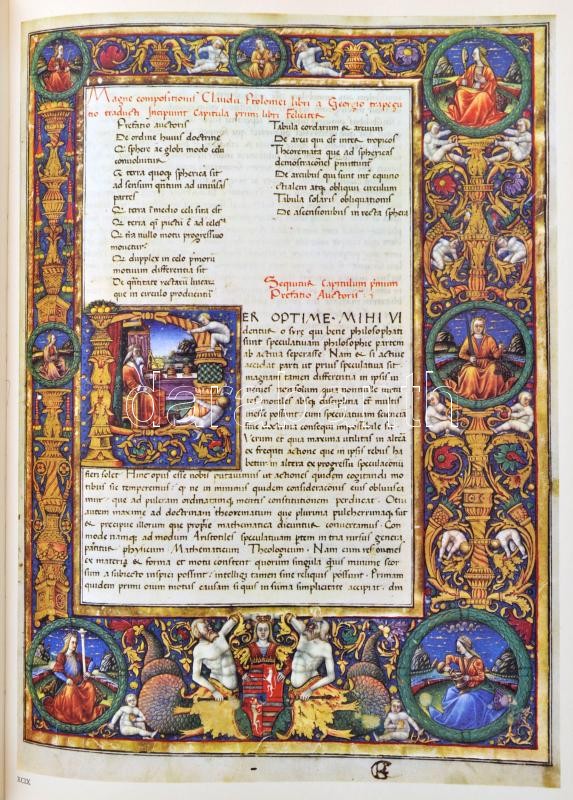 Magne compositionis Claudii Ptolomei libri a Georgio trapezu
tio traducti Incipiunt Capitula primi libri Feliciter
Prefatio auctoris
De ordine huius doctrine
Q sphere ac globi modo celu
convoluitur
Q terra quoq spherica sit
ad sensum qntum ad univsas
partes
Q terra i medio celi sita est
Q terra qsi puctu e ad celest
Q tra nullo motu progressivo
movetur
Q dupplex in celo pmorū
motuum differentia sit
De qntitate rectarū linear
que in circulo producuntr
Tabula cordarum & arcuum
De arcu qui est inter tropicos
Theoremata que ad sphericas
demostraciones pmittunt
De arcibus qui sunt int equino
ctialem atq obliquū circulum
Tabula solaris obliquationis
De ascensionibus in recta sphera
Sequitur Capitulum pmum
Prefatio Auctoris
ER OPTIME MIHI VI
dentur o syre qui bene philosophati
sunt speculativam philosophie partem
ab activa seperasse Nam & si active
accidat parti ut prius speculativa sit
magnam tamen differentia in ipsis in
venies non solum quia
morales absq disciplina & multis
inesse possunt cum speculativam sciencia
sine doctrina consequi impossibile sit
Verum et quia maxima utilitas in altera
ex frequti actione que in ipsis rebus ha
betur in altera ex progressu speculacionis
fieri solet Hinc opus esse nobis putavimus ut actiones quidem cogitandi mo
tibus sic temperemus q ne in minimis quidem consideracionis eius oblivisca
mur que ad pulcram ordinatamq mentis constitutionem perducat Otiu
autem maxime ad doctrinam theorematum que plurima pulcherrimaq sut
& precipue illorum que proprie mathematica dicuntur convertamus Com
mode namq ad modum Aristotiles speculativam ptem in tria rursus genera
partitur physicum Mathematicum Theologicum Nam cum res omnes
ex materia & forma et motu constent quorum singula quis minime seor
sum a subiecto inspici possint intelligi tamen sine reliquis possunt Primam
quidem primi orum motus causam si quis in suma simplicitate accipiat dm
XCIX